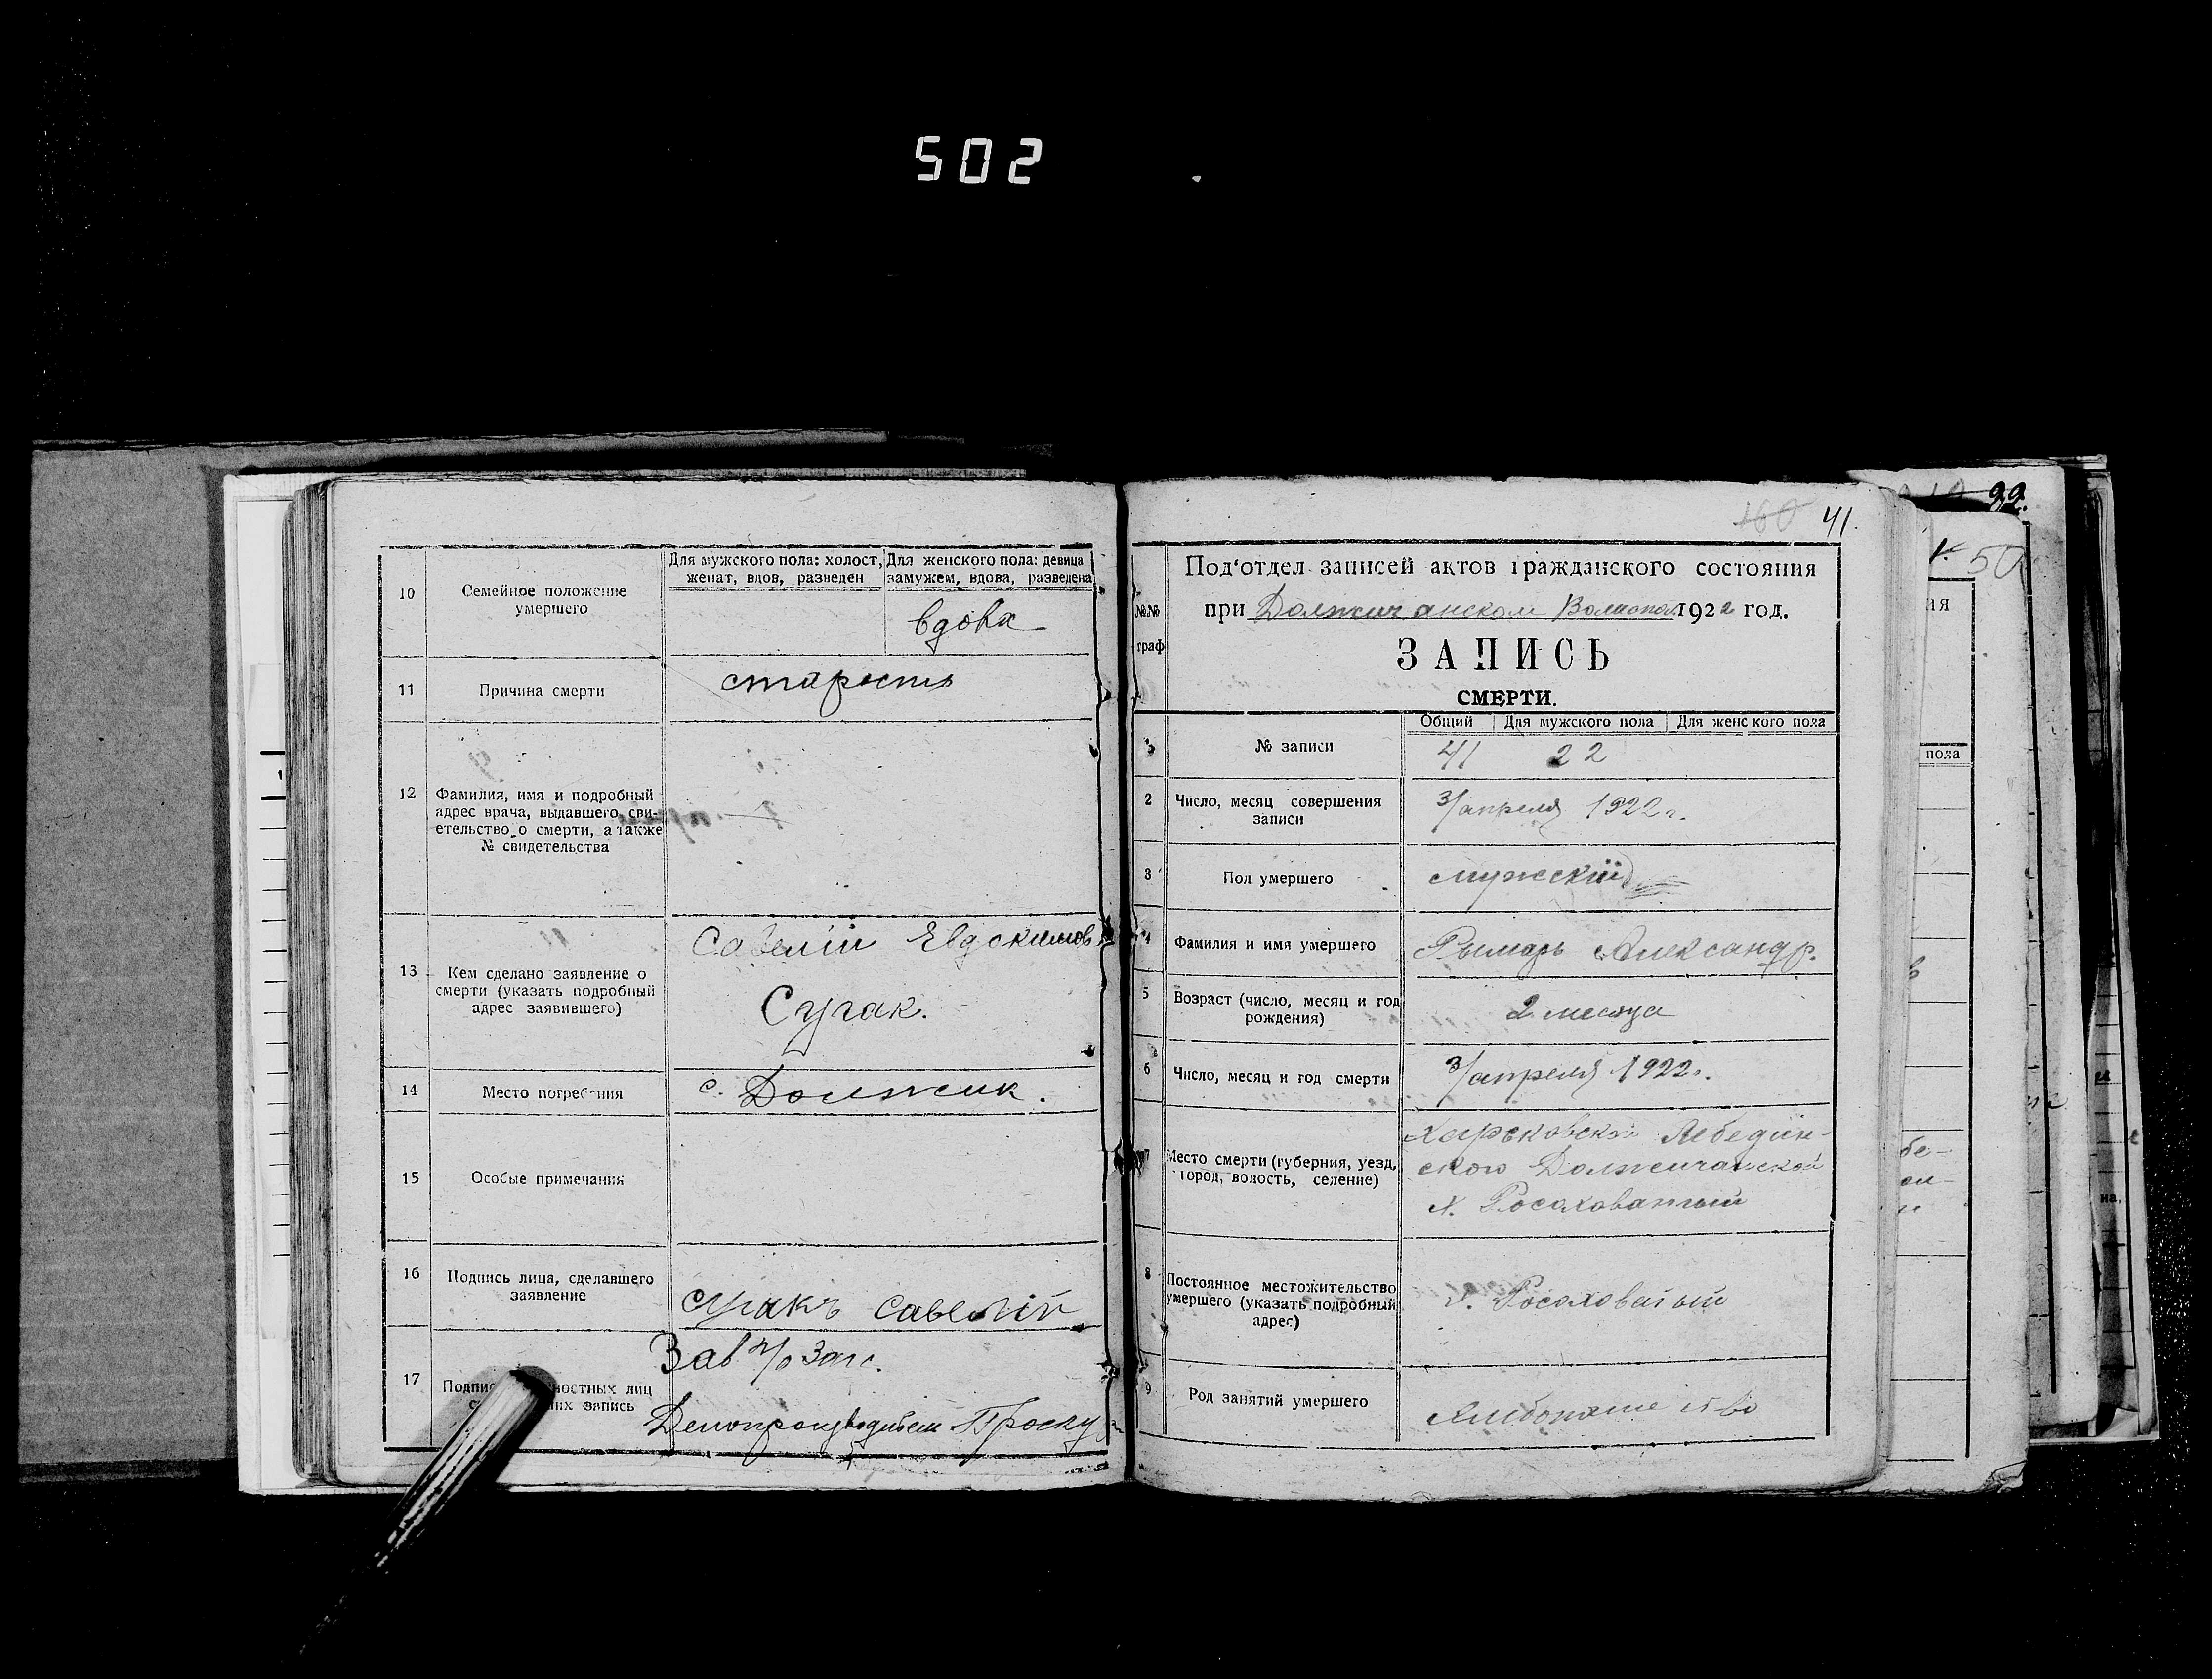 502
10
Семейное положение
умершего
Для мужского пола: холост,
женат, вдов, разведен
Для женского пола: девица
замужем, вдова, разведена
вдова
11
Причина смерти
старость
12
Фамилия, имя и подробный
адрес врача, выдавшего сви-
етельство о смерти, а также
№ свидетельства
13
Кем сделано заявление о
смерти (указать подробный
адрес заявившего)
Савелій Евдокимов
Сугак.
14
Место погребения
с. Должик.
15
Особые примечания
16
Подпись лица, сделавшего
заявление
Сугакъ Савелій
17
Подпис ностных лиц
с их запись
Зав п/о Загс.
Делопроизводитель Проску
160 41.
№№
граф
Под'отдел записей актов гражданского состояния
при Должичанском 1922 год.
ЗАПИСЬ
СМЕРТИ.
Общий
Для мужского пола
Для женского пола
№ записи
41 22
2
Число, месяц совершения
записи
3/апреля 1922 г.
3
Пол умершего
мужский
4
Фамилия и имя умершего
Рымарь Александр.
5
Возраст (число, месяц и год
рождения)
2 месяца
6
Число, месяц и год смерти
3/апреля 1922 г.
7
Место смерти (губерния, уезд,
город, волость, селение)
Харьковской Лебедин-
ского Должичанской
х. Росоховатый
8
Постоянное местожительство
умершего (указать подробный
адрес)
х. Росоховатый
9
Род занятий умершего
хлебопашество
50
ая
пола
бе-
на,